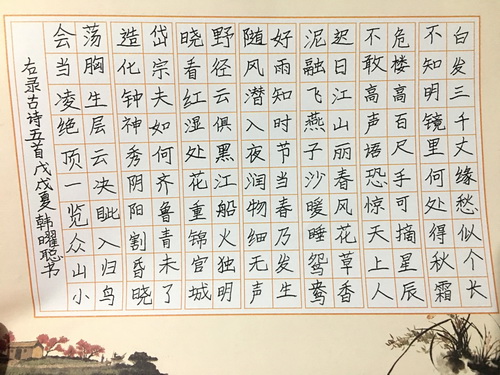 白发三千丈缘愁似个长
不知明镜里何处得秋霜
危楼高百尺手可摘星辰
不敢高声语恐惊天上人
迟日江山丽春风花草香
泥融飞燕子沙暖睡鸳鸯
好雨知时节当春乃发生
随风潜入夜润物细无声
野径云俱黑江船火独明
晓看红湿处花重锦官城
岱宗夫如何齐鲁青未了
造化钟神秀阴阳割昏晓
荡胸生层云决眦入归鸟
会当凌绝顶一览众山小
右录古诗五首戊戌夏韩曜聪书